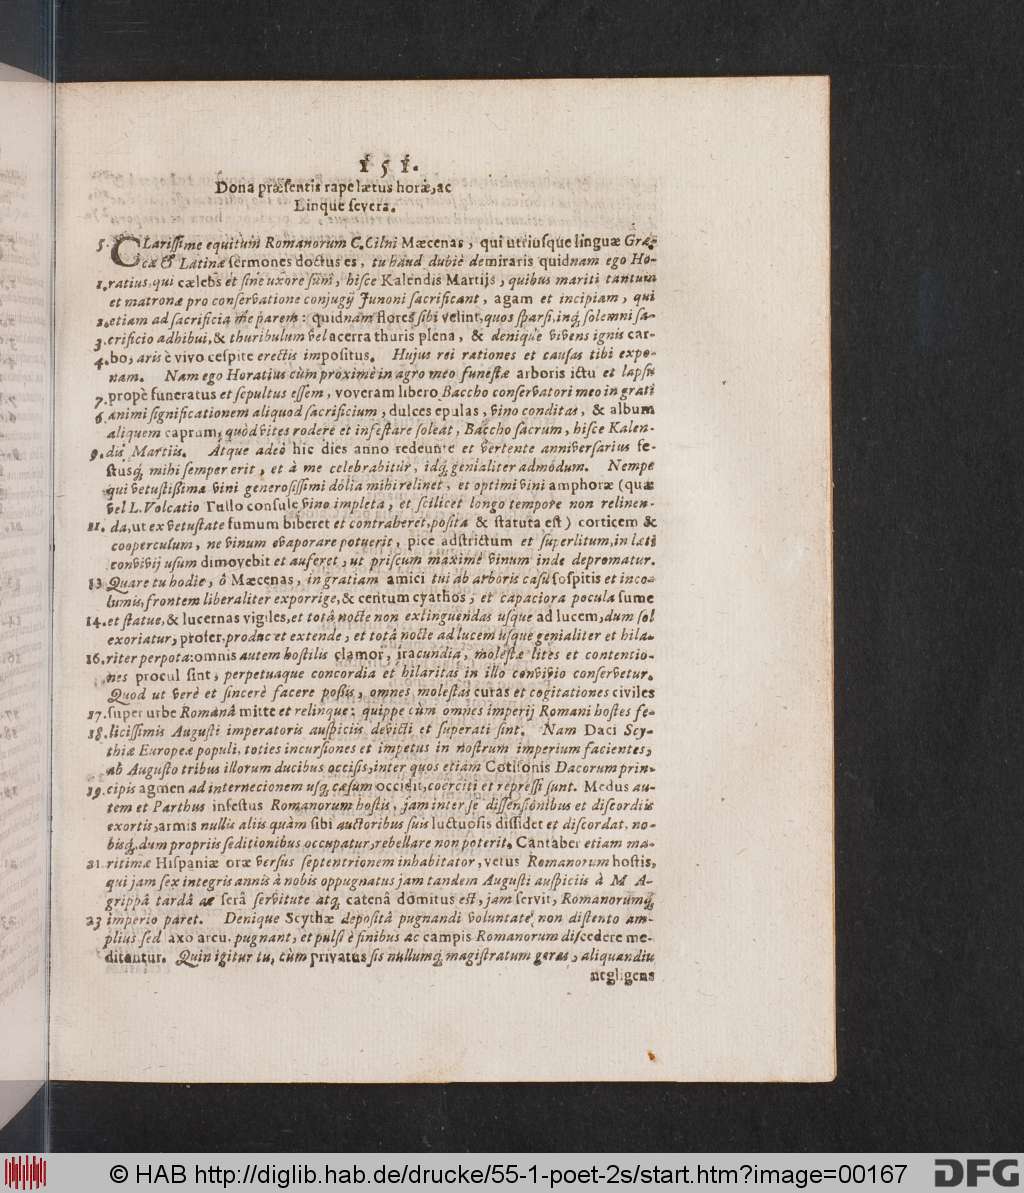 151.
Dona præsentis rape lætus horæ, ac
Linque severa.
5. CLarissime equitum Romanorum C. Cilni Mæcenas, qui utriusque linguæ Græ-
cæ & Latinæ sermones doctus es, tu haud dubiè demiraris quidnam ego Ho-
1. ratius, qui cælebs et sine uxore sum, hisce Kalendis Martijs, quibus mariti tantum
et matronæ pro conservatione conjugij Junoni sacrificant, agam et incipiam, qui
2. etiam ad sacrificia me parem: quidnam flores sibi velint, quos sparsi, inq; solemni sa-
3. crificio adhibui, & thuribulum vel acerra thuris plena, & denique vivens ignis car-
4. bo, aris è vivo cespite erectis impositus. Hujus rei rationes et causas tibi expo-
nam. Nam ego Horatius cùm proximè in agro meo funestæ arboris ictu et lapsu
7. propè funeratus et sepultus essem, voveram libero Baccho conservatori meo in grati
6. animi significationem aliquod sacrificium, dulces epulas, vino conditas, & album
aliquem caprum, quòd vites rodere et infestare soleat, Baccho sacrum, hisce Kalen-
9. dis Martiis. Atque adeò hic dies anno redeunte et vertente anniversarius fe-
stusq; mihi semper erit, et à me celebrabitur, idq; genialiter admodum. Nempe
qui vetustißima vini generosissimi dolia mihi relinet, et optimi vini amphoræ (quæ
vel L. Volcatio Tullo consule vino impleta, et scilicet longo tempore non relinen-
11. da, ut ex vetustate fumum biberet et contraheret, posita & statuta est) corticem &
cooperculum, ne vinum evaporare potuerit, pice adstrictum et superlitum, in læti
convivij usum dimovebit et auferet, ut priscum maximè vinum inde depromatur.
13. Quare tu hodie, ô Mæcenas, in gratiam amici tui ab arboris casu sospitis et inco-
lumis, frontem liberaliter exporrige, & centum cyathos, et capaciora pocula sume
14. et statue, & lucernas vigiles, et totâ nocte non extinguendas usque ad lucem, dum sol
exoriatur, profer, produc et extende, et totâ nocte ad lucem usque genialiter et hila-
16. riter perpota: omnis autem hostilis clamor, iracundia, molestæ lites et contentio-
nes procul sint, perpetuaque concordia et hilaritas in illo convivio conservetur.
Quod ut verè et sincerè facere poßis, omnes molestas curas et cogitationes civiles
17. super urbe Romanâ mitte et relinque: quippe cùm omnes imperij Romani hostes fe-
18. licissimis Augusti imperatoris auspiciis devicti et superati sint. Nam Daci Scy-
thiæ Europeæ populi, toties incursiones et impetus in nostrum imperium facientes,
ab Augusto tribus illorum ducibus occisis, inter quos etiam Cotisonis Dacorum prin-
19. cipis agmen ad internecionem usq; cæsum occidit, coerciti et repressi sunt. Medus au-
tem et Parthus infestus Romanorum hostis, jam inter se dissensionibus et discordiis
exortis, armis nullis aliis quàm sibi auctoribus suis luctuosis dissidet et discordat, no-
bisq; dum propriis seditionibus occupatur, rebellare non poterit. Cantaber etiam ma-
21. ritimæ Hispaniæ oræ versus septentrionem inhabitator, vetus Romanorum hostis,
qui jam sex integris annis à nobis oppugnatus jam tandem Augusti auspiciis à M A-
grippâ tardâ ac serâ servitute atq; catenâ domitus est, jam servit, Romanorumq;
23 imperio paret. Denique Scythæ depositâ pugnandi voluntate, non distento am-
plius sed laxo arcu, pugnant, et pulsi è finibus ac campis Romanorum discedere me-
ditantur. Quin igitur tu, cùm privatus sis nullumq; magistratum geras, aliquandiu
negligens
© HAB http://diglib.hab.de/drucke/55-1-poet-2s/start.htm?image=00167
DFG